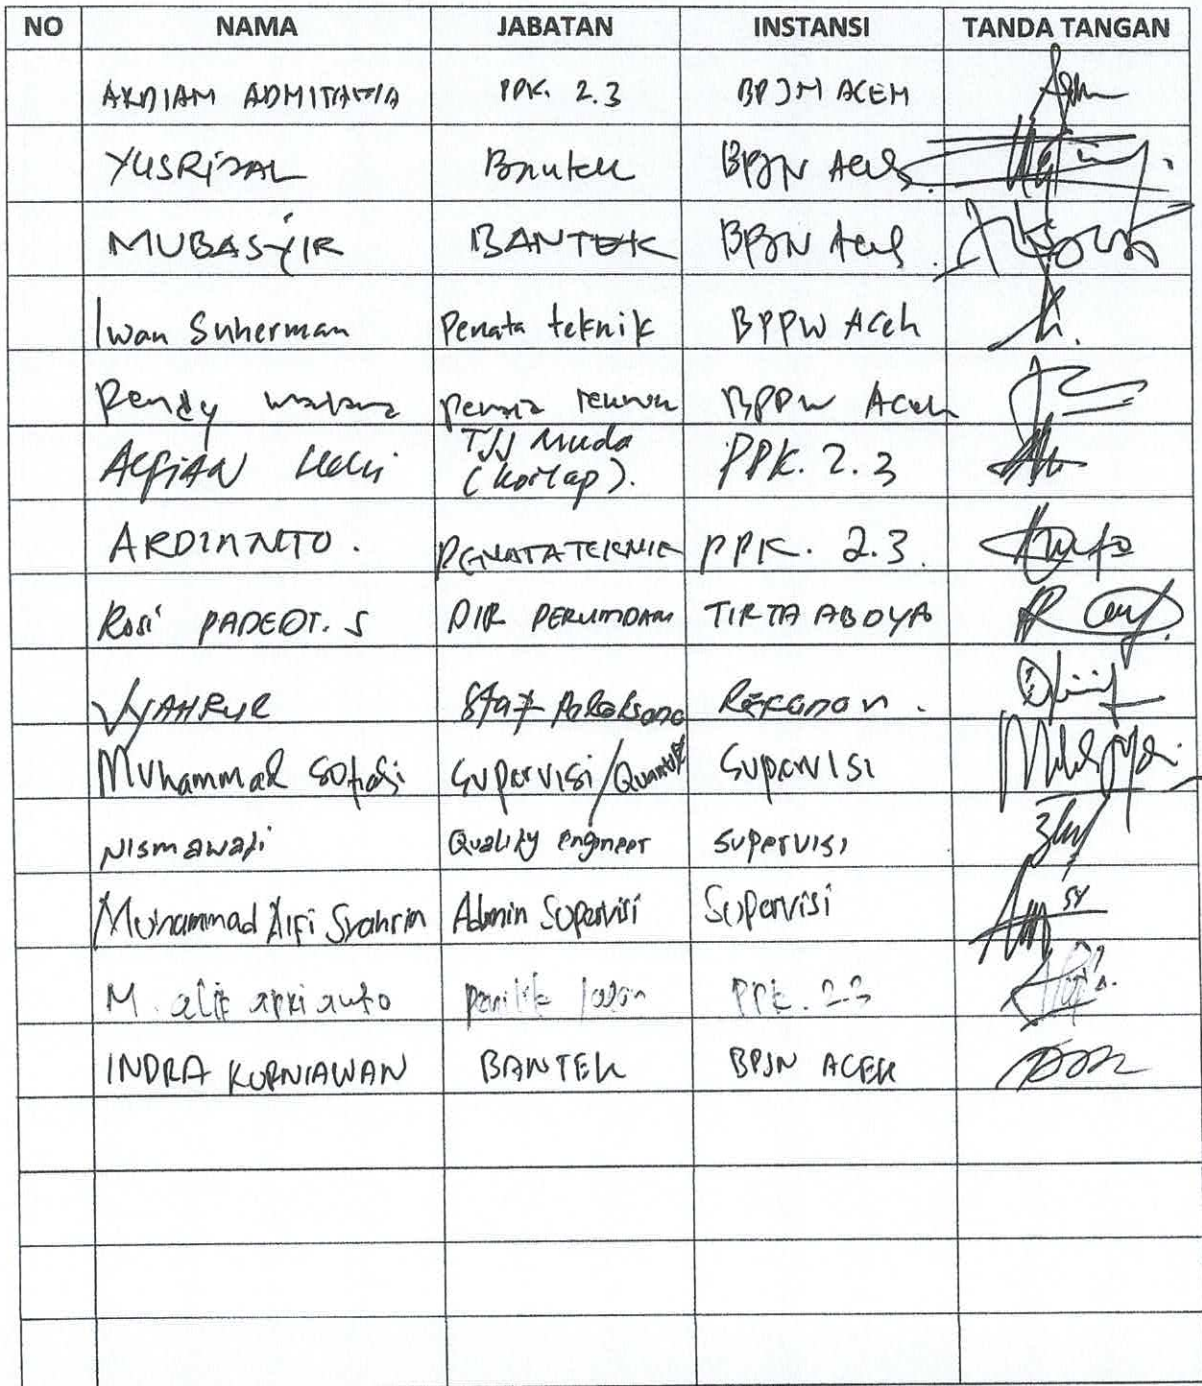 NO NAMA JABATAN INSTANSI TANDA TANGAN
PPK. 2.3 BPJN ACEH
YUSRIZAL Bantek BPJN Aceh
MUBASYIR BANTEK BPJN Aceh
Iwan Suherman Penata teknik BPPW Aceh
Rendy BPPW Aceh
TJJ Muda
Alfian (Korlap). PPK. 2.3
ARDIANTO. PENATA TEKNIK PPK. 2.3
Rosi PADEOT. S DIR PERUMDAM TIRTA ABDYA
Staf Pelaksana Rekanan.
Muhammad Supervisi/ Supervisi
Nismawati Quality engineer Supervisi
Muhammad Alfi Syahrin Admin Supervisi Supervisi
M. alif penilik jalan PPK. 2.3
INDRA KURNIAWAN BANTEK BPJN ACEH